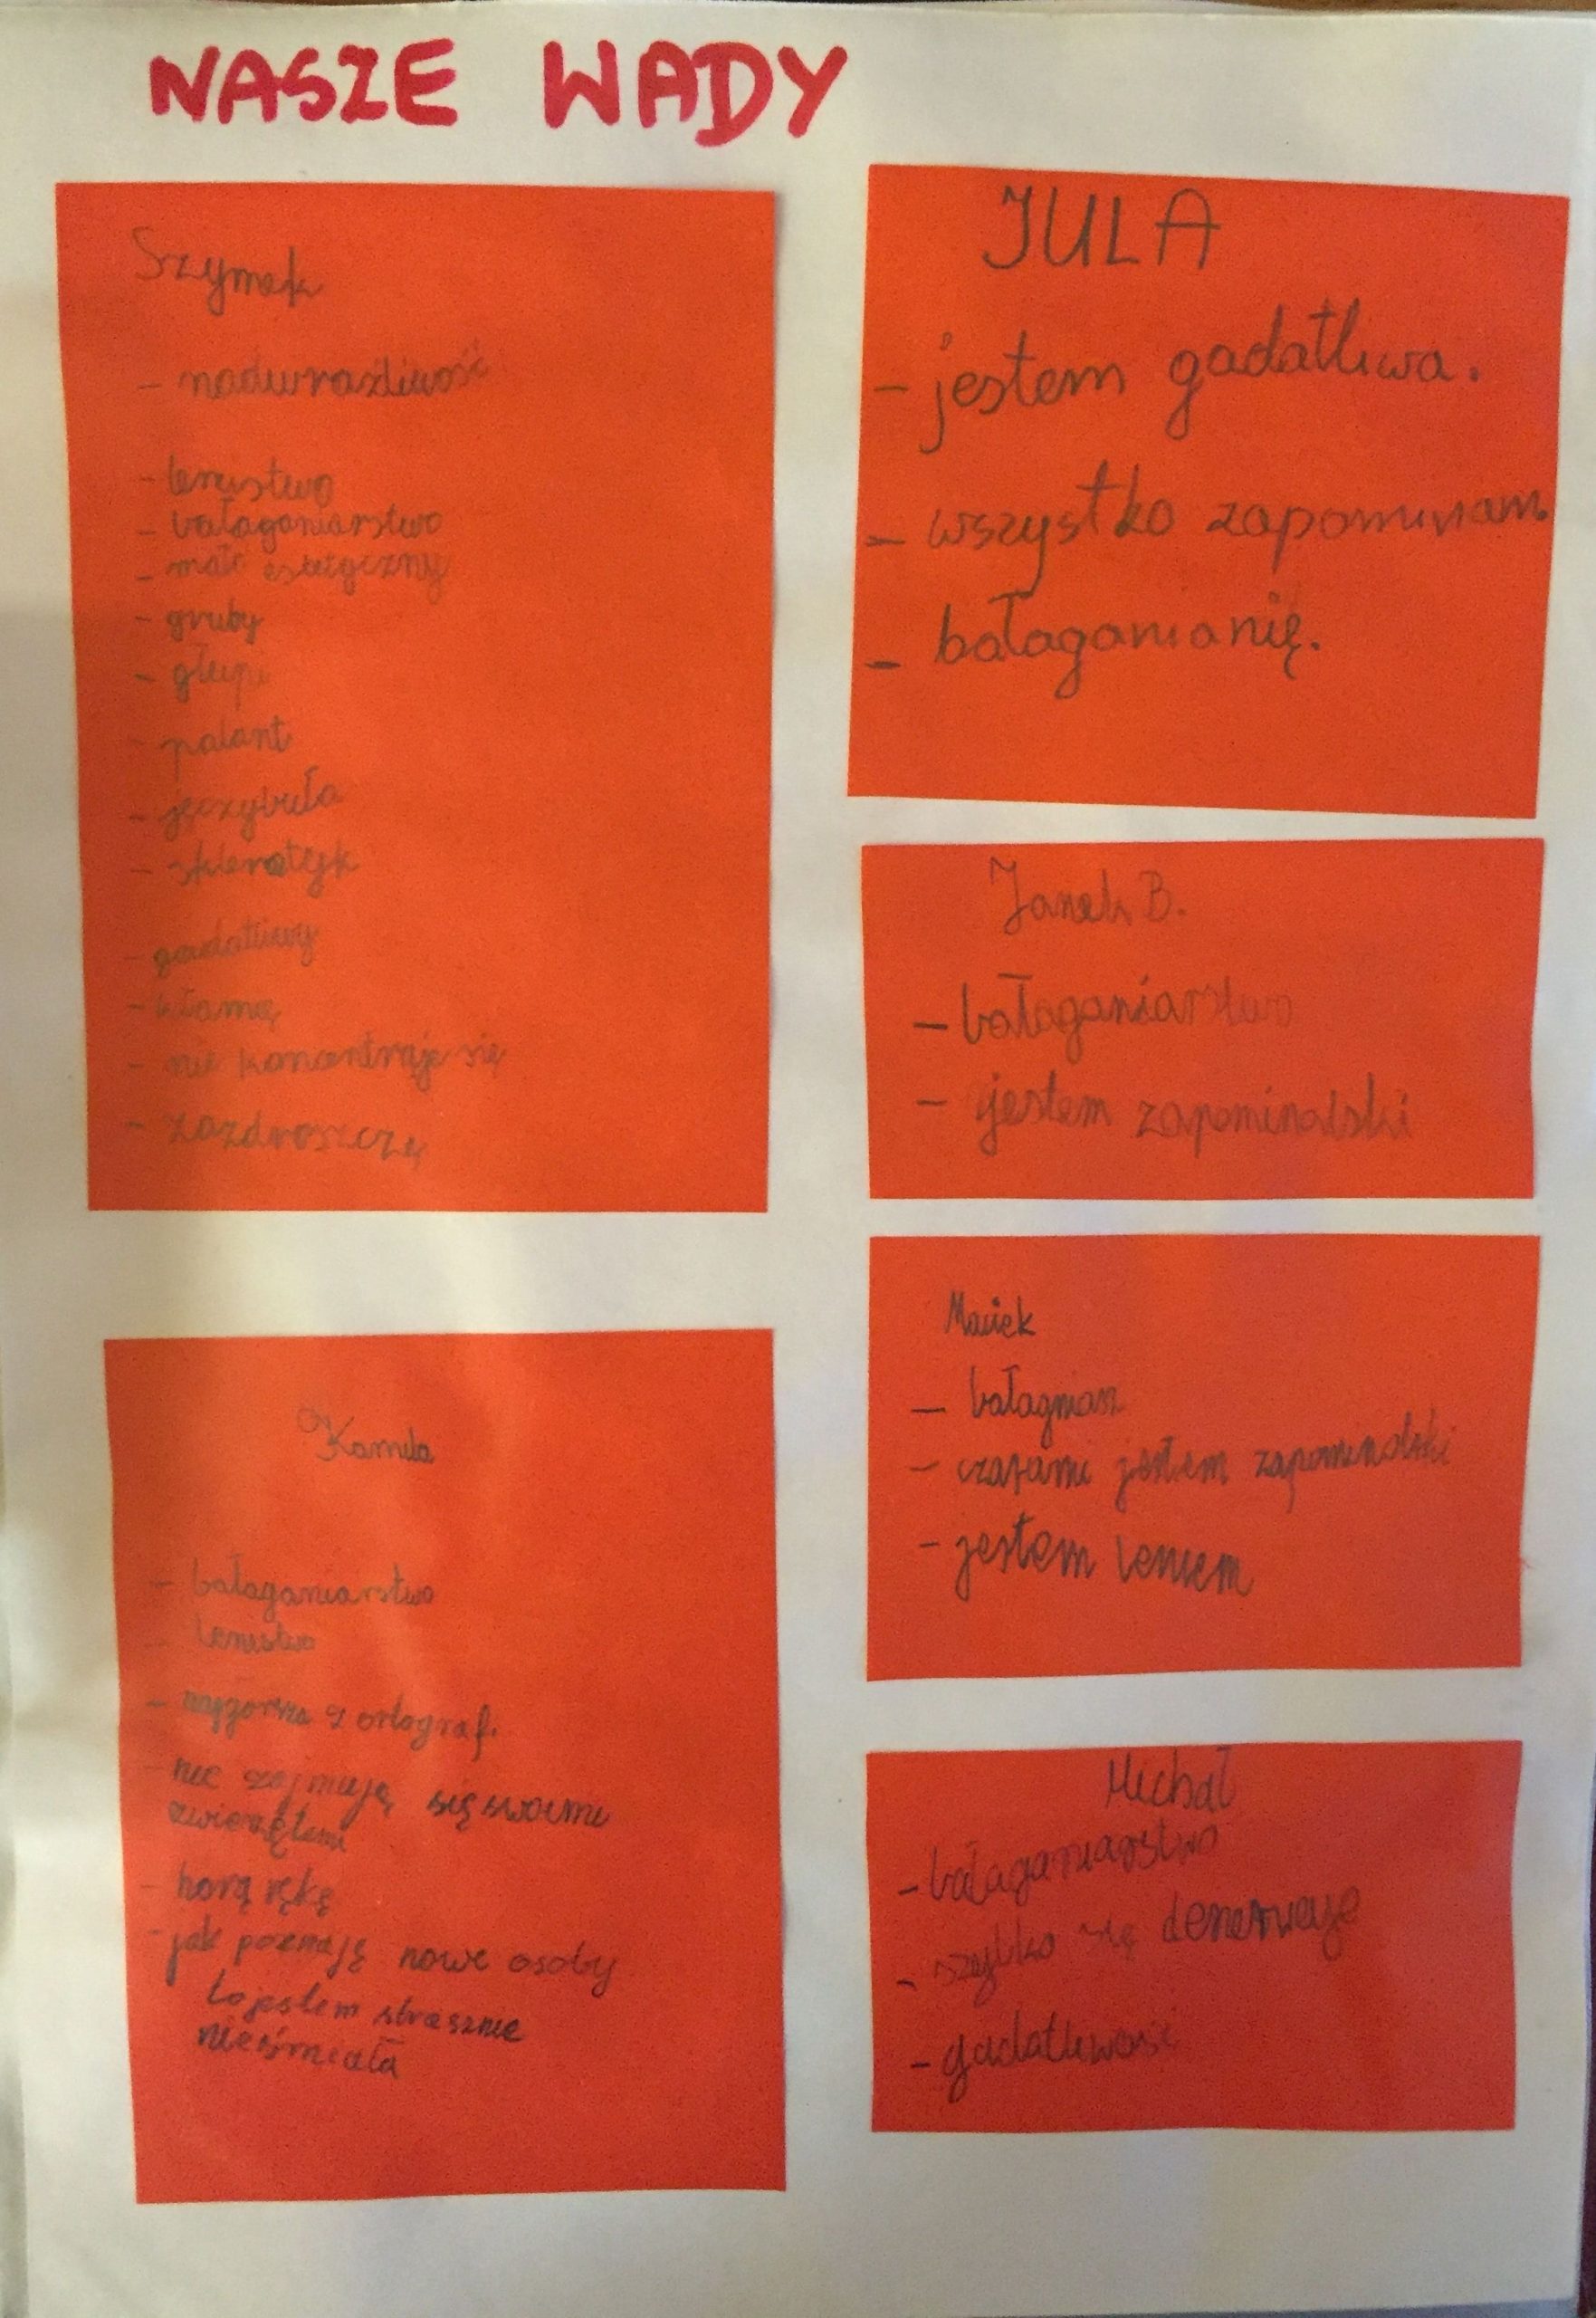 NASZE WADY
Szymek
- nadwrażliwość
- lenistwo
- bałaganiarstwo
- mało estetyczny
- gruby
- głupi
- palant
- jęczybuła
- sklerotyk
- gadatliwy
- kłamię
- nie koncentruje się
- zazdroszczę
Kamila
- bałaganiarstwo
- lenistwo
- najgorsza z ortograf.
- nie zajmuję się swoimi
zwierzętami
- horą rękę
- jak poznaję nowe osoby
to jestem strasznie
nieśmiała
JULA
- jestem gadatliwa.
- wszystko zapominam.
- bałaganianię.
Janek B.
- bałaganiarstwo
- jestem zapominalski
Maciek
- bałagniarz
- czasami jestem zapominalski
- jestem leniem
Michał
- bałaganiarstwo
- szybko się denerwuje
- gadatliwość